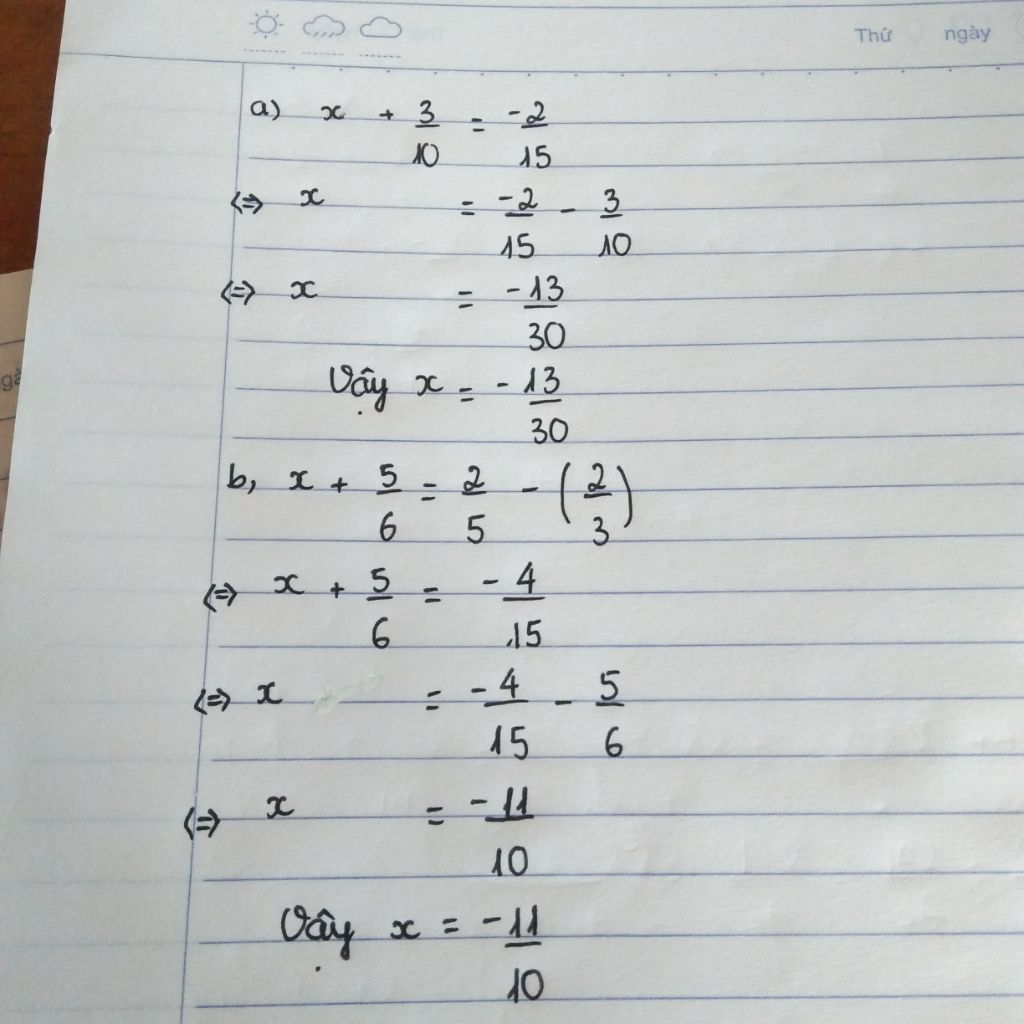 Thứ ngày
a) x + 3/10 = -2/15
<=> x = -2/15 - 3/10
<=> x = -13/30
Vậy x = -13/30
b, x + 5/6 = 2/5 - (2/3)
<=> x + 5/6 = -4/15
<=> x = -4/15 - 5/6
<=> x = -11/10
Vậy x = -11/10